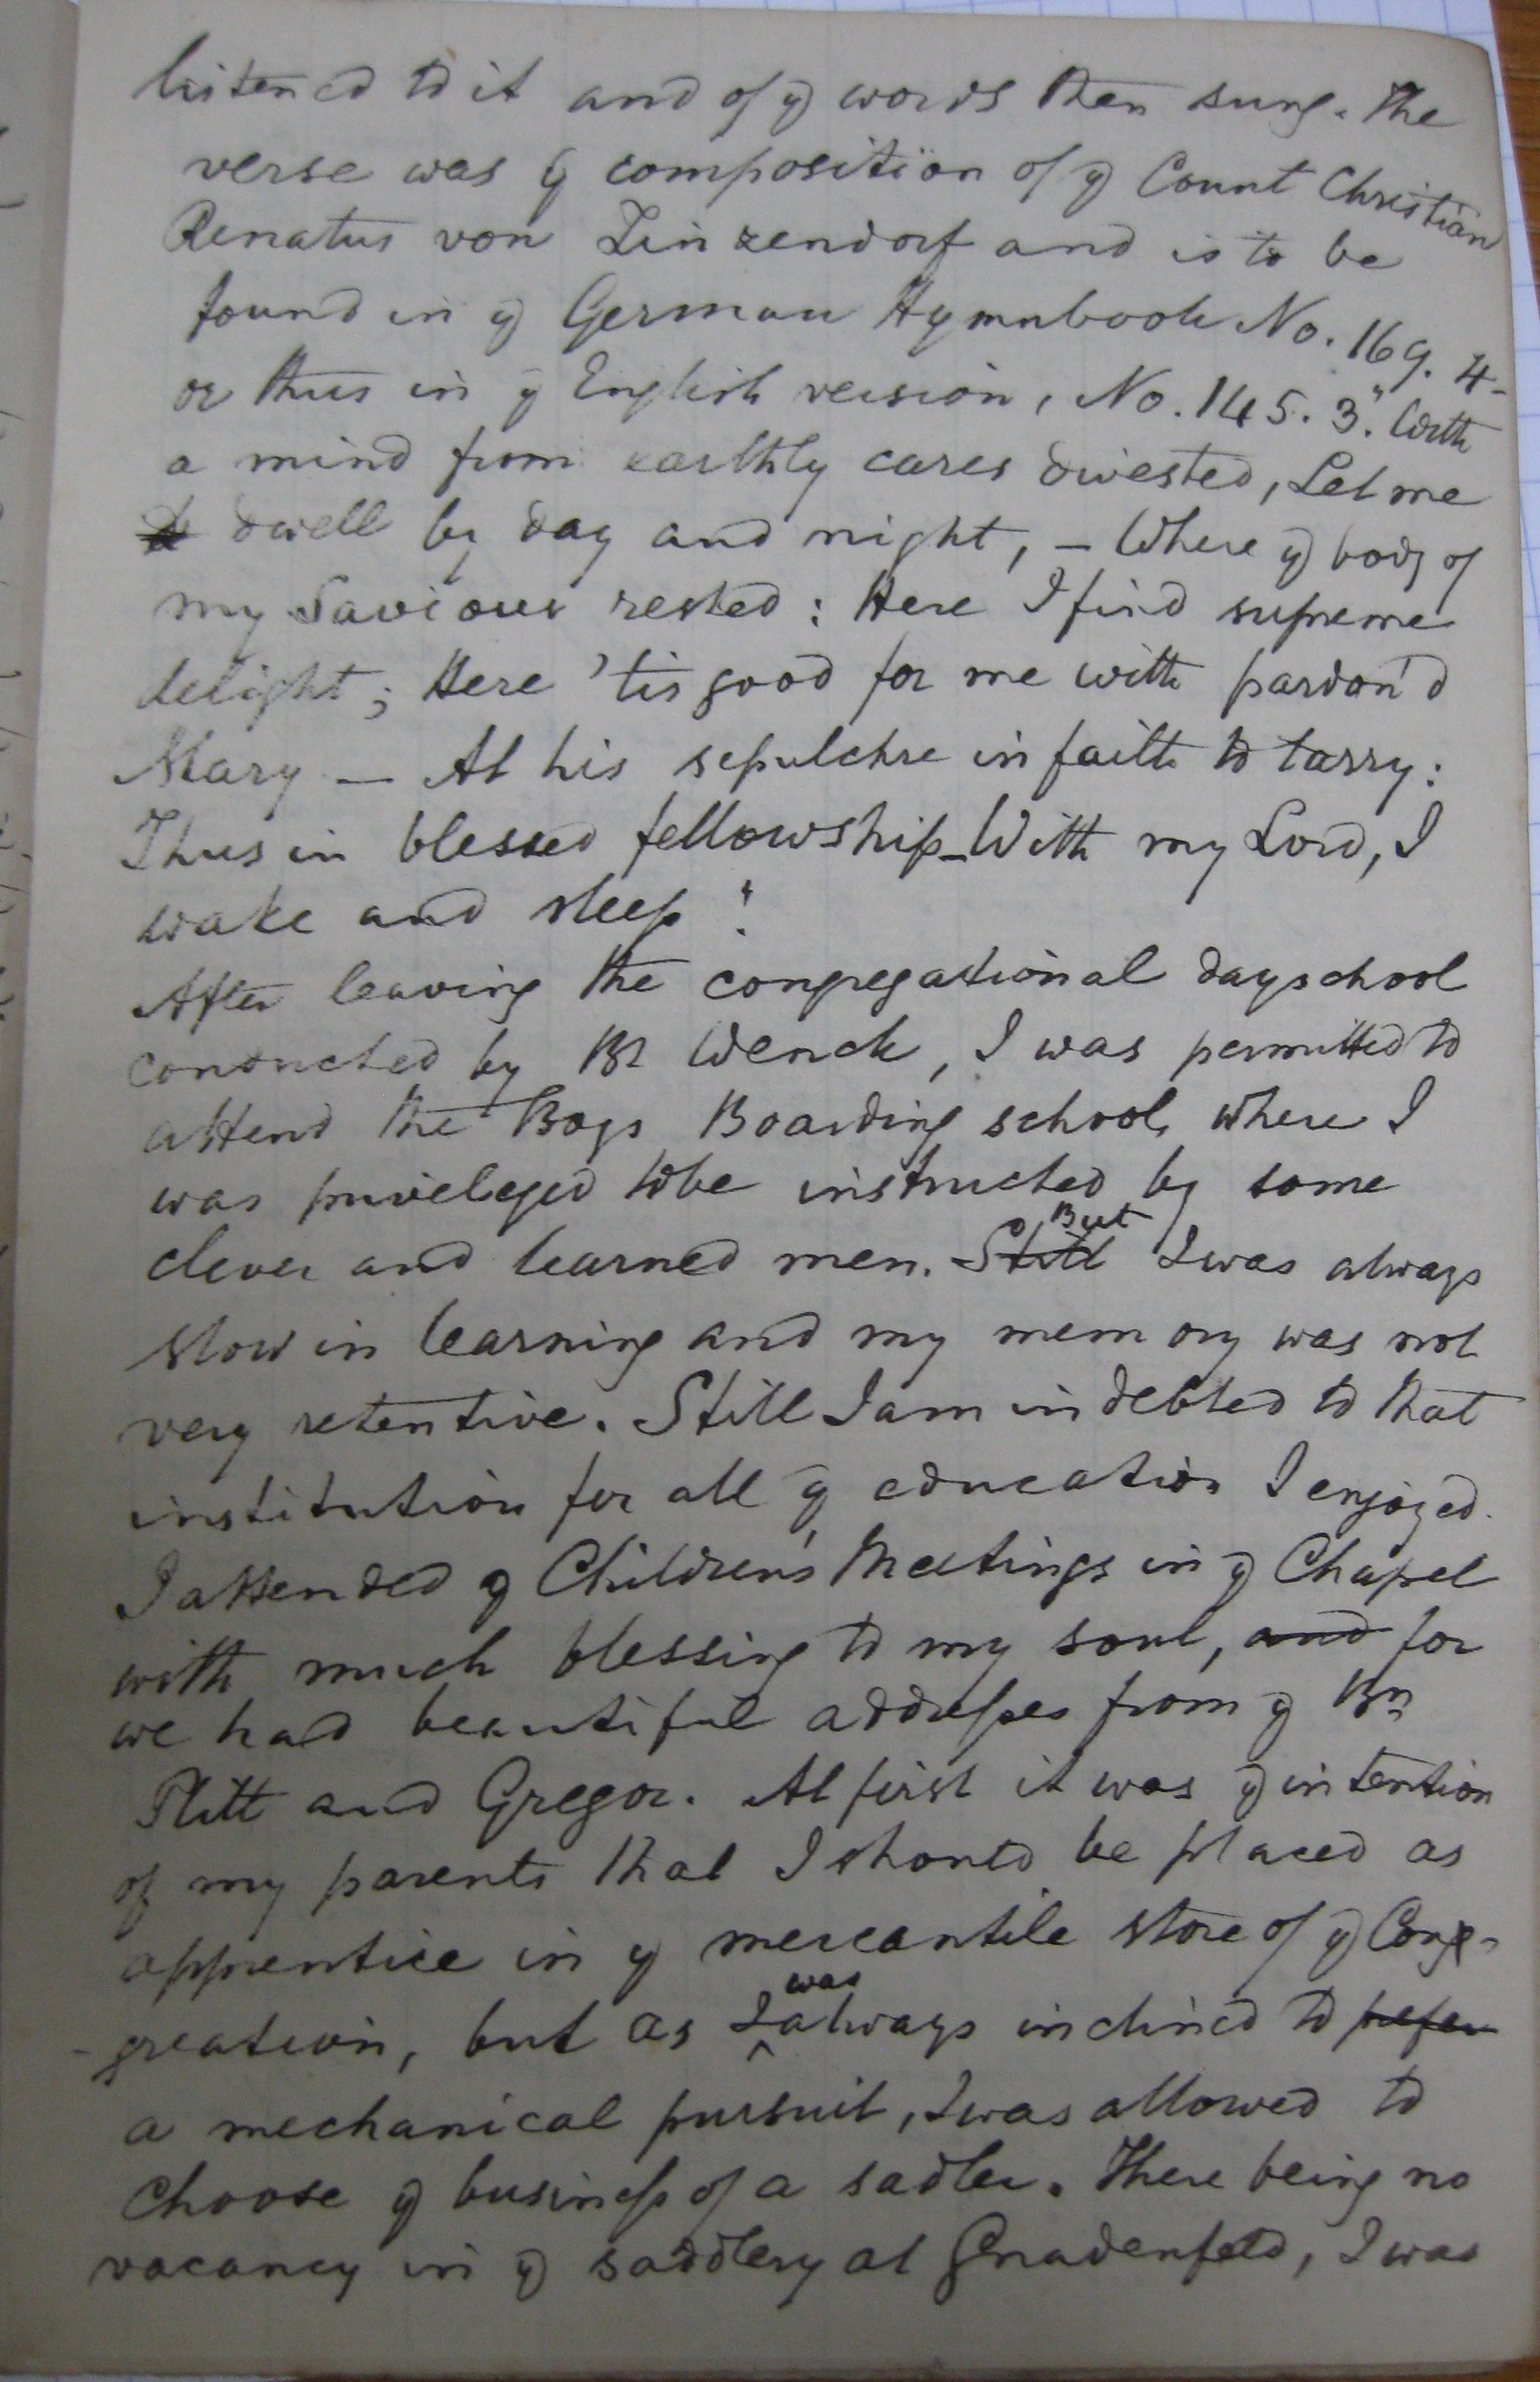 listened to it and of ye words then sung. The
verse was ye composition of ye Count Christian
Renatus von Zinzendorf and is to be
found in ye German Hymnbook No. 169. 4-
or thus in ye English version, No. 145. 3. "With
a mind from earthly cares divested, Let me
dwell by day and night, – Where ye body of
my Saviour rested: Here I find supreme
delight; Here 'tis good for me with pardon'd
Mary – At his sepulchre in faith to tarry:
Thus in blessed fellowship – With my Lord, I
wake and sleep".
After leaving the congregational dayschool
conducted by Br Wenck, I was permitted to
attend the Boys Boarding school, where I
was priveleged to be instructed by some
clever and learned men. Still But I was always
slow in learning and my memory was not
very retentive. Still I am indebted to that
institution for all ye education I enjoyed.
I attended ye Children's Meetings in ye Chapel
with much blessing to my soul, and for
we had beautiful addresses from ye Brn
Plitt and Gregor. At first it was ye intention
of my parents that I should be placed as
apprentice in ye mercantile store of ye Cong-
-greation, but as I was always inclined to prefer
a mechanical pursuit, I was allowed to
choose ye business of a sadler. There being no
vacancy in ye saddlery at Gnadenfeld, I was